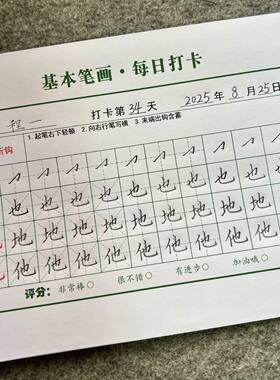 基本笔画·每日打卡
程一 打卡第34天 2025年8月25日
折钩 1. 起笔右下轻顿 2. 向右行笔写横 3. 末端出钩含蓄
也 也 也 也 也 也 也 也 也
地 地 地 地 地 地 地 地 地
他 他 他 他 他 他 他 他 他
评分： 非常棒○ 很不错○ 有进步○ 加油哦○